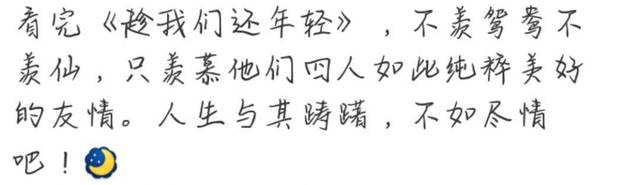 看完《趁我们还年轻》，不羡鸳鸯不
羡仙，只羡慕他们四人如此纯粹美好
的友情。人生与其踌躇，不如尽情
吧！🌜